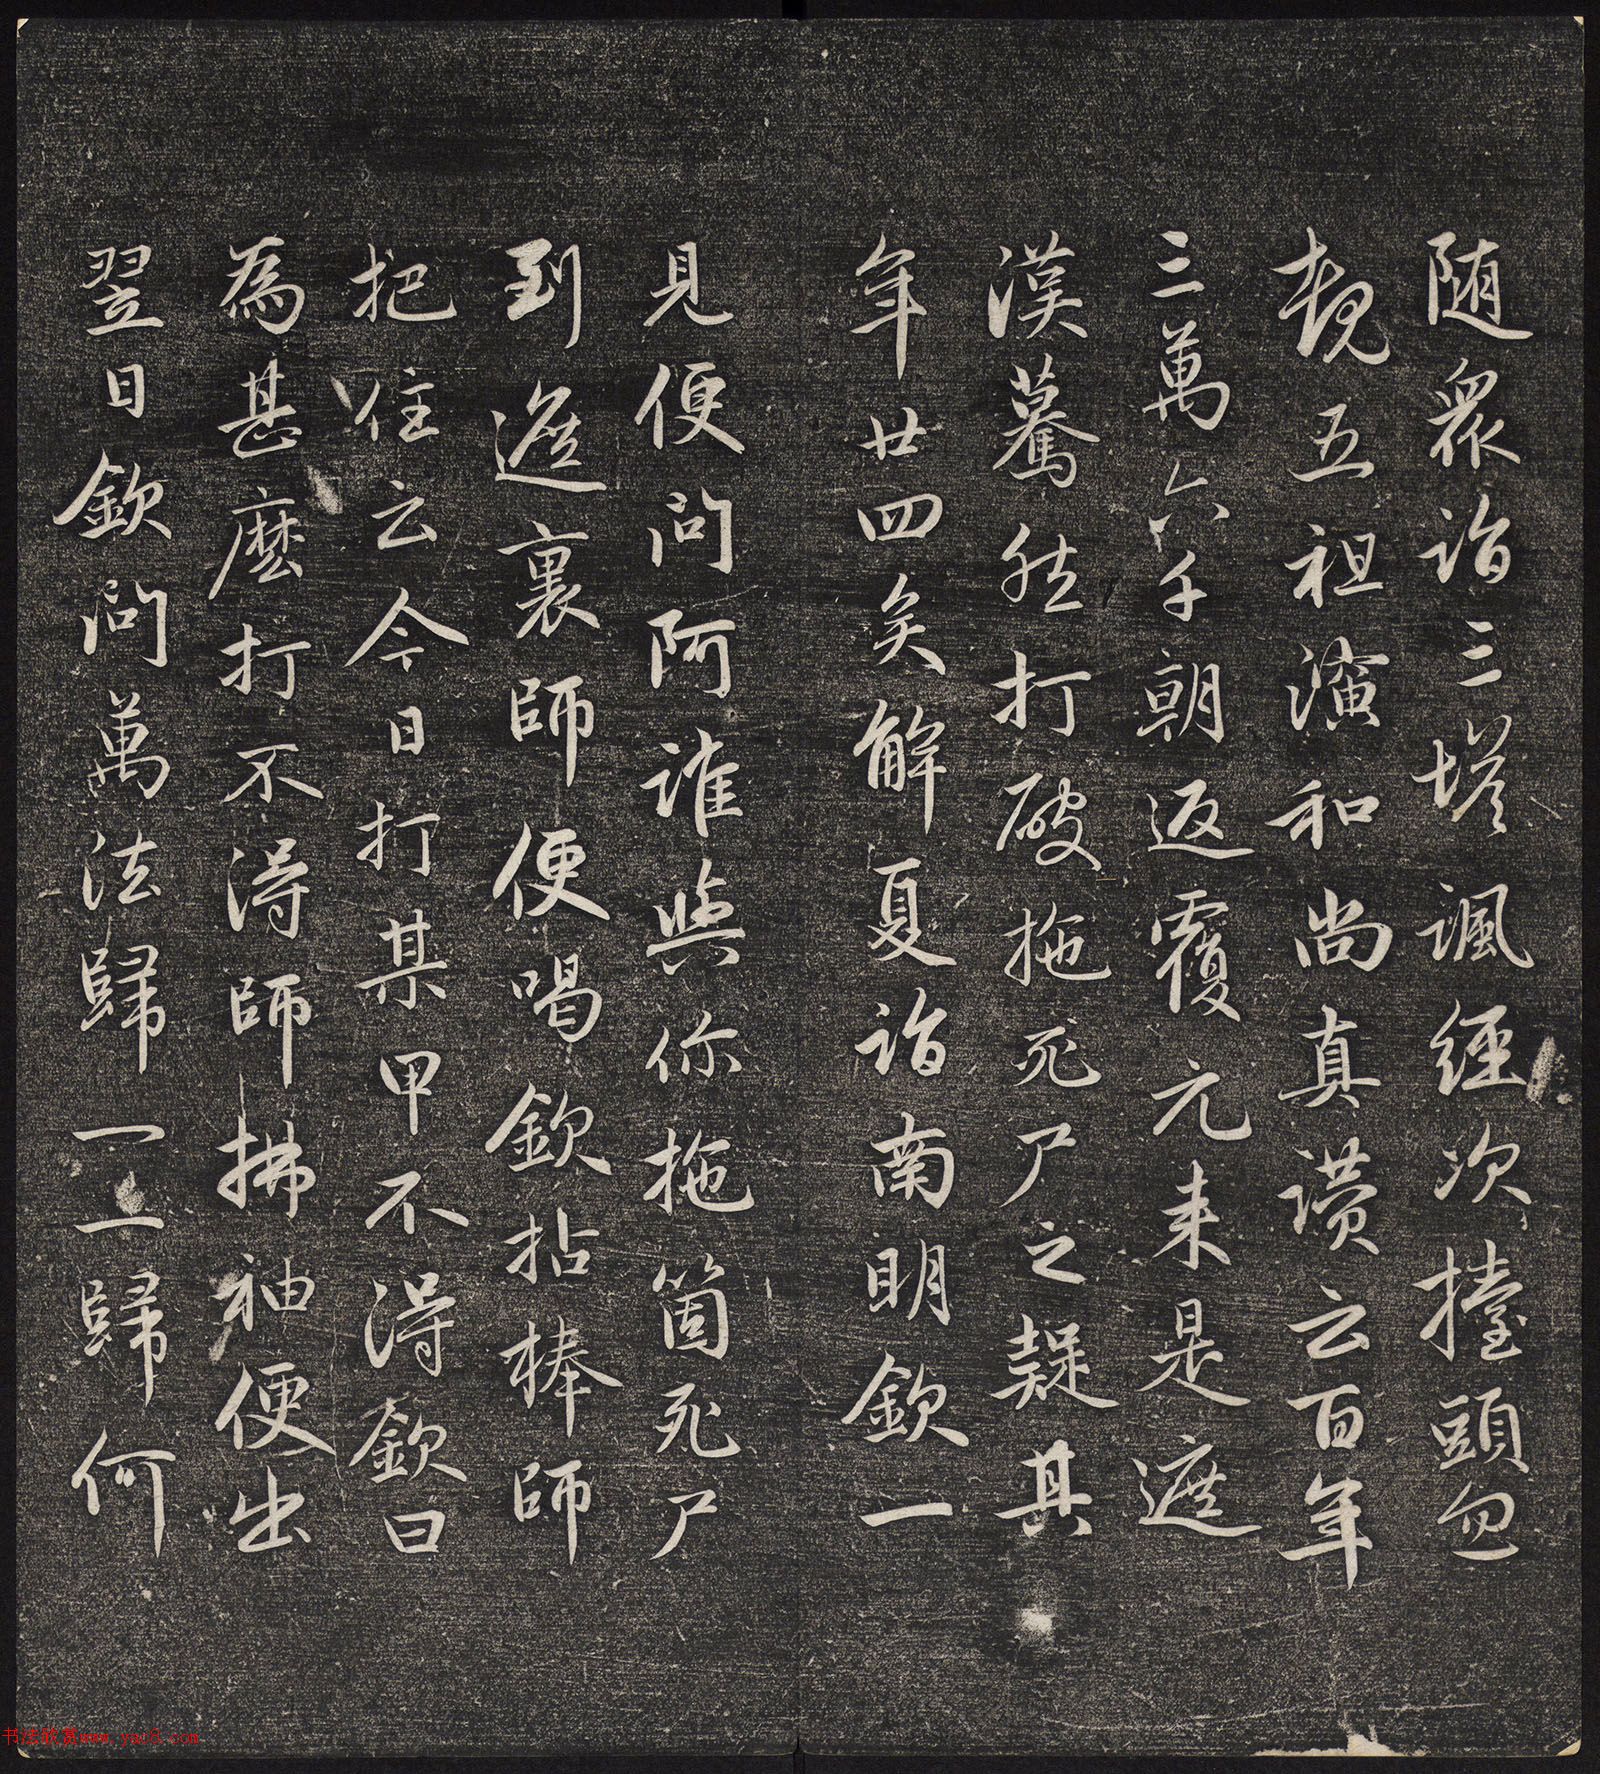 随眾詣三塔諷經次擡頭忽
覩五祖演和尚真讚云百年
三萬六千朝返覆元来是遮
漢驀然打破拖死尸之疑其
年廿四矣解夏詣南明欽一
見便問阿誰與你拖箇死尸
到遮裏師便喝欽拈棒師
把住云今日打某甲不得欽曰
為甚麼打不得師拂袖便出
翌日欽問萬法歸一一歸何
书法欣赏www.yac8.com